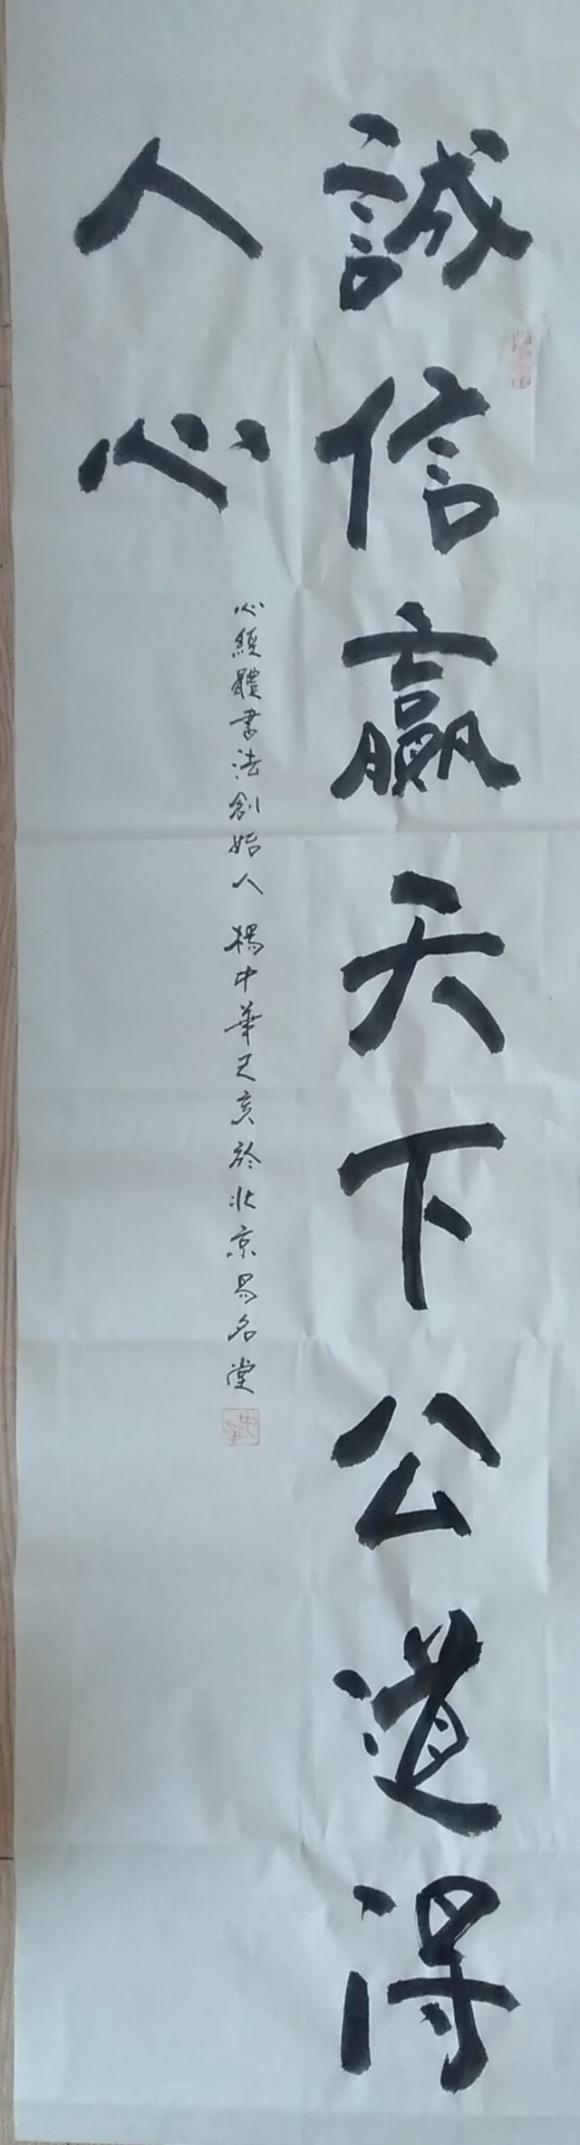 誠信贏天下公道得
人心
心經體書法創始人楊中華己亥於北京易名堂